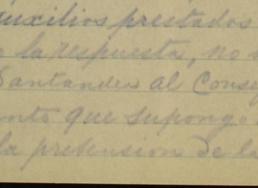 auxilios prestados
la respuesta, no s
Santander al Conse
ento que supongo
la pretension de l